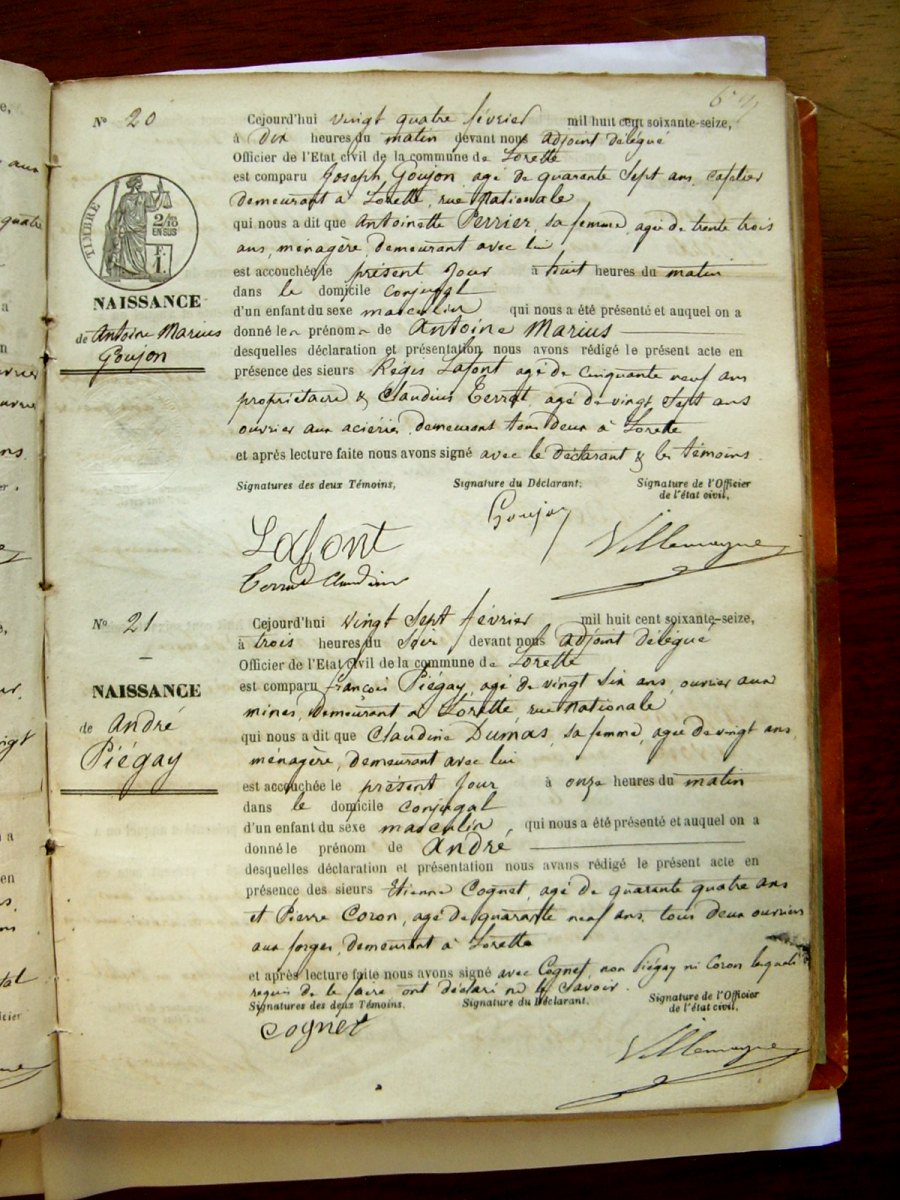 Nº 20
Cejourd'hui vingt quatre février mil huit cent soixante-seize,
à dix heures du matin devant nous adjoint délégué
Officier de l'Etat civil de la commune de Lorette
est comparu Joseph Goujon, agé de quarante sept ans, cafetier
demeurant à Lorette, rue Nationale
qui nous a dit que Antoinette Perrier, sa femme, agée de trente trois
ans, ménagère, demeurant avec lui
est accouchée le présent jour à huit heures du matin
dans le domicile conjugal
d'un enfant du sexe masculin qui nous a été présenté et auquel on a
donné le prénom de Antoine Marius
desquelles déclaration et présentation nous avons rédigé le présent acte en
présence des sieurs Régis Lafont agé de cinquante neuf ans
propriétaire & Claudius Terrat, agé de vingt sept ans
ouvrier aux aciéries, demeurant tous deux à Lorette
et après lecture faite nous avons signé avec le déclarant & les témoins.
TIMBRE
2/10
EN SUS
NAISSANCE
de Antoine Marius
Goujon
Signatures des deux Témoins, Signature du Déclarant, Signature de l'Officier
de l'état civil,
Goujon
Lafont
Villemagne
Claudius
Nº 21
Cejourd'hui vingt sept février mil huit cent soixante-seize,
à trois heures du soir devant nous adjoint délégué
Officier de l'Etat civil de la commune de Lorette
est comparu François Piégay, agé de vingt six ans, ouvrier aux
mines, demeurant à Lorette, rue Nationale
qui nous a dit que Claudine Dumas, sa femme, agée de vingt ans,
ménagère, demeurant avec lui
est accouchée le présent jour à onze heures du matin
dans le domicile conjugal
d'un enfant du sexe masculin, qui nous a été présenté et auquel on a
donné le prénom de André
desquelles déclaration et présentation nous avans rédigé le présent acte en
présence des sieurs Etienne Cognet, agé de quarante quatre ans
et Pierre Coron, agé de quarante neuf ans, tous deux ouvriers
aux forges, demeurant à Lorette
et après lecture faite nous avons signé avec Cognet, non Piégay ni Coron lesquels
requis de le faire ont déclaré ne le savoir.
NAISSANCE
de André
Piégay
Signatures des deux Témoins. Signature du Déclarant. Signature de l'Officier
de l'état civil,
Cognet
Villemagne